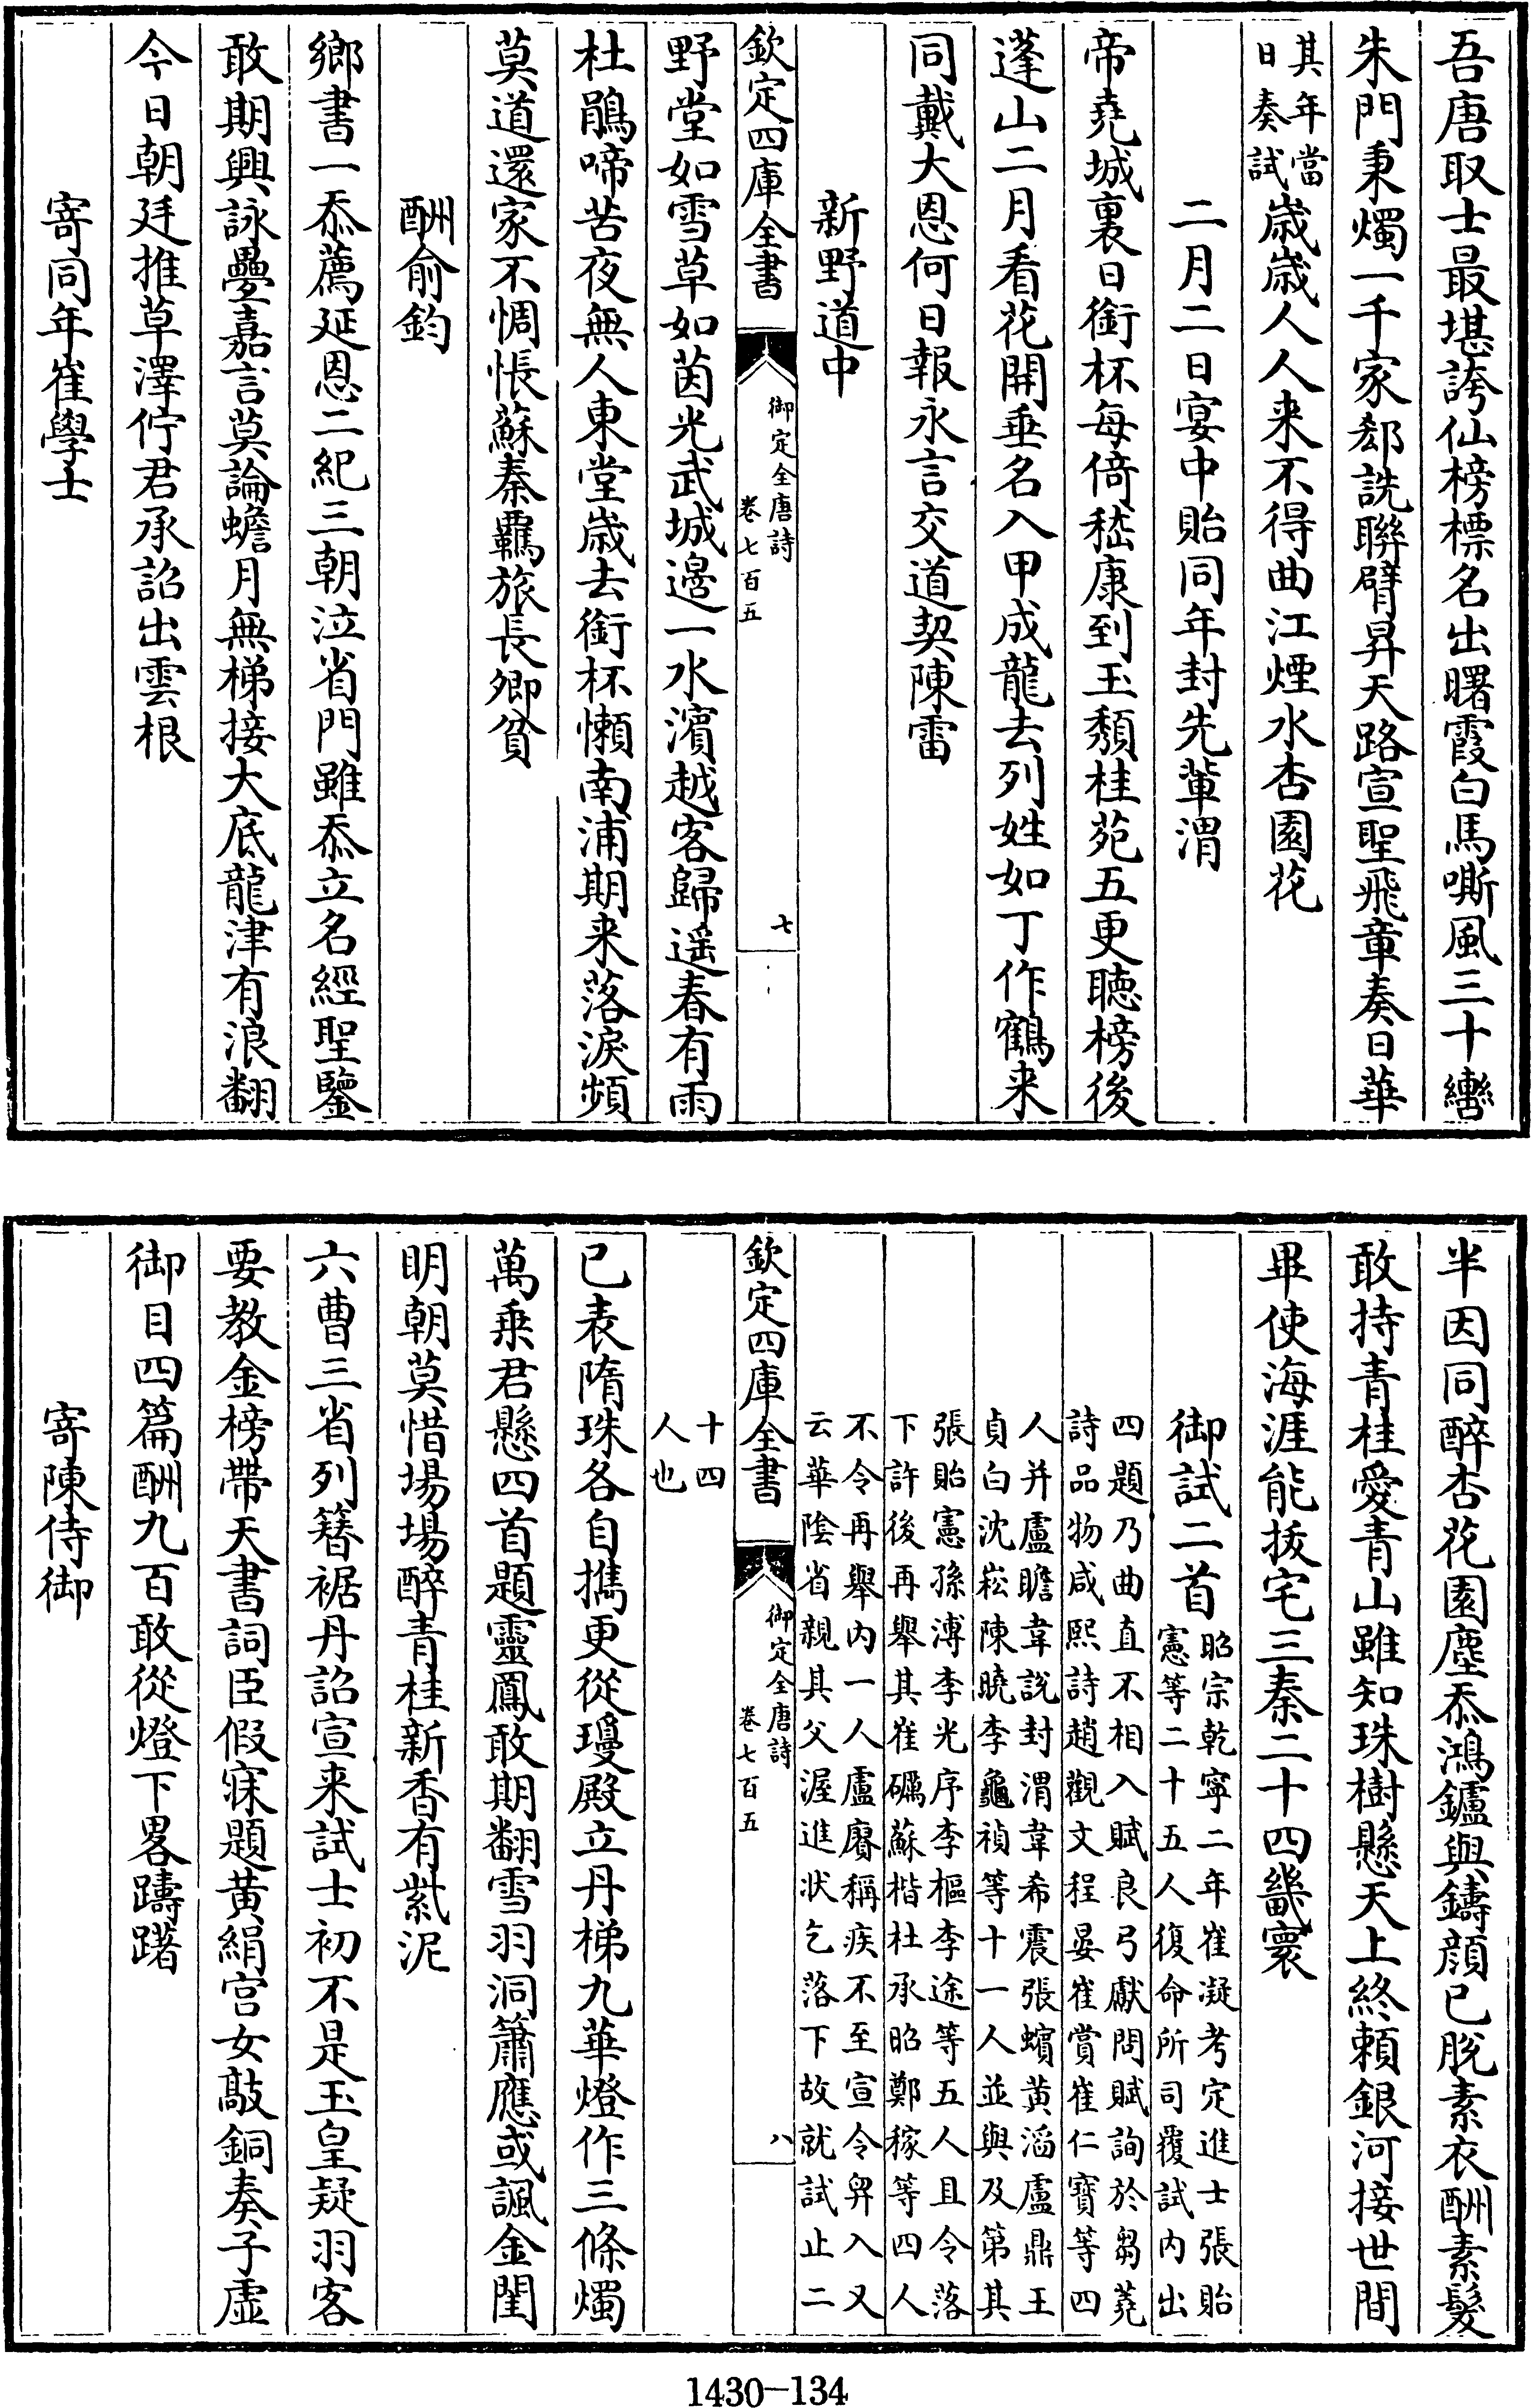 吾唐取士最堪誇仙榜標名出曙霞白馬嘶風三十轡
朱門秉燭一千家郄詵聯臂昇天路宣聖飛章奏日華
其年當
日奏試
歲歲人人来不得曲江煙水杏園花
二月二日宴中貽同年封先輩渭
帝堯城裏日銜杯每倚嵇康到玉頽桂苑五更聽榜後
蓬山二月看花開垂名入甲成龍去列姓如丁作鶴来
同戴大恩何日報永言交道契陳雷
新野道中
欽定四庫全書
御定全唐詩
卷七百五
七
野堂如雪草如茵光武城邊一水濱越客歸遥春有雨
杜鵑啼苦夜無人東堂歲去銜杯懶南浦期来落淚頻
莫道還家不惆悵蘇秦羈旅長卿貧
酬俞鈞
鄉書一忝薦延恩二紀三朝泣省門雖忝立名經聖鑒
敢期興詠疊嘉言莫論蟾月無梯接大底龍津有浪翻
今日朝廷推草澤佇君承詔出雲根
寄同年崔學士
半因同醉杏花園塵忝鴻鑪與鑄顔已脫素衣酬素髮
敢持青桂愛青山雖知珠樹懸天上終賴銀河接世間
畢使海涯能拔宅三秦二十四畿寰
御試二首
昭宗乾寧二年崔凝考定進士張貽
憲等二十五人復命所司覆試内出
四題乃曲直不相入賦良弓獻問賦詢於芻蕘
詩品物咸熙詩趙觀文程晏崔賞崔仁寶等四
人并盧瞻韋說封渭韋希震張蠙黃滔盧鼎王
貞白沈崧陳曉李龜禎等十一人並與及第其
張貽憲孫溥李光序李樞李途等五人且令落
下許後再舉其崔礪蘇楷杜承昭鄭稼等四人
不令再舉内一人盧賡稱疾不至宣令舁入又
云華陰省親其父渥進状乞落下故就試止二
欽定四庫全書
御定全唐詩
卷七百五
八
十四
人也
已表隋珠各自攜更從瓊殿立丹梯九華燈作三條燭
萬乗君懸四首題靈鳳敢期翻雪羽洞簫應或諷金閨
明朝莫惜場場醉青桂新香有紫泥
六曹三省列簪裾丹詔宣来試士初不是玉皇疑羽客
要教金榜帶天書詞臣假寐題黃絹宫女敲銅奏子虛
御目四篇酬九百敢從燈下畧躊躇
寄陳侍御
1430—134